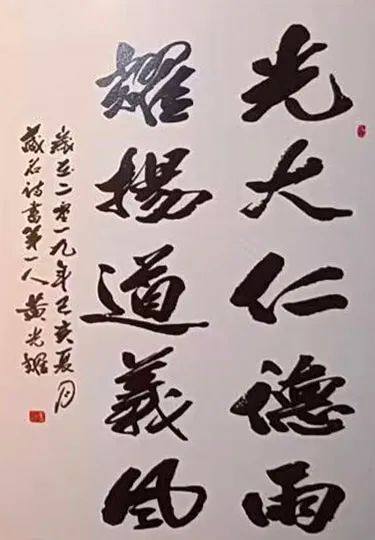 光大仁德雨
耀揚道義風
歲在二零一九年己亥夏月
藏名詩書第一人 黃光耀